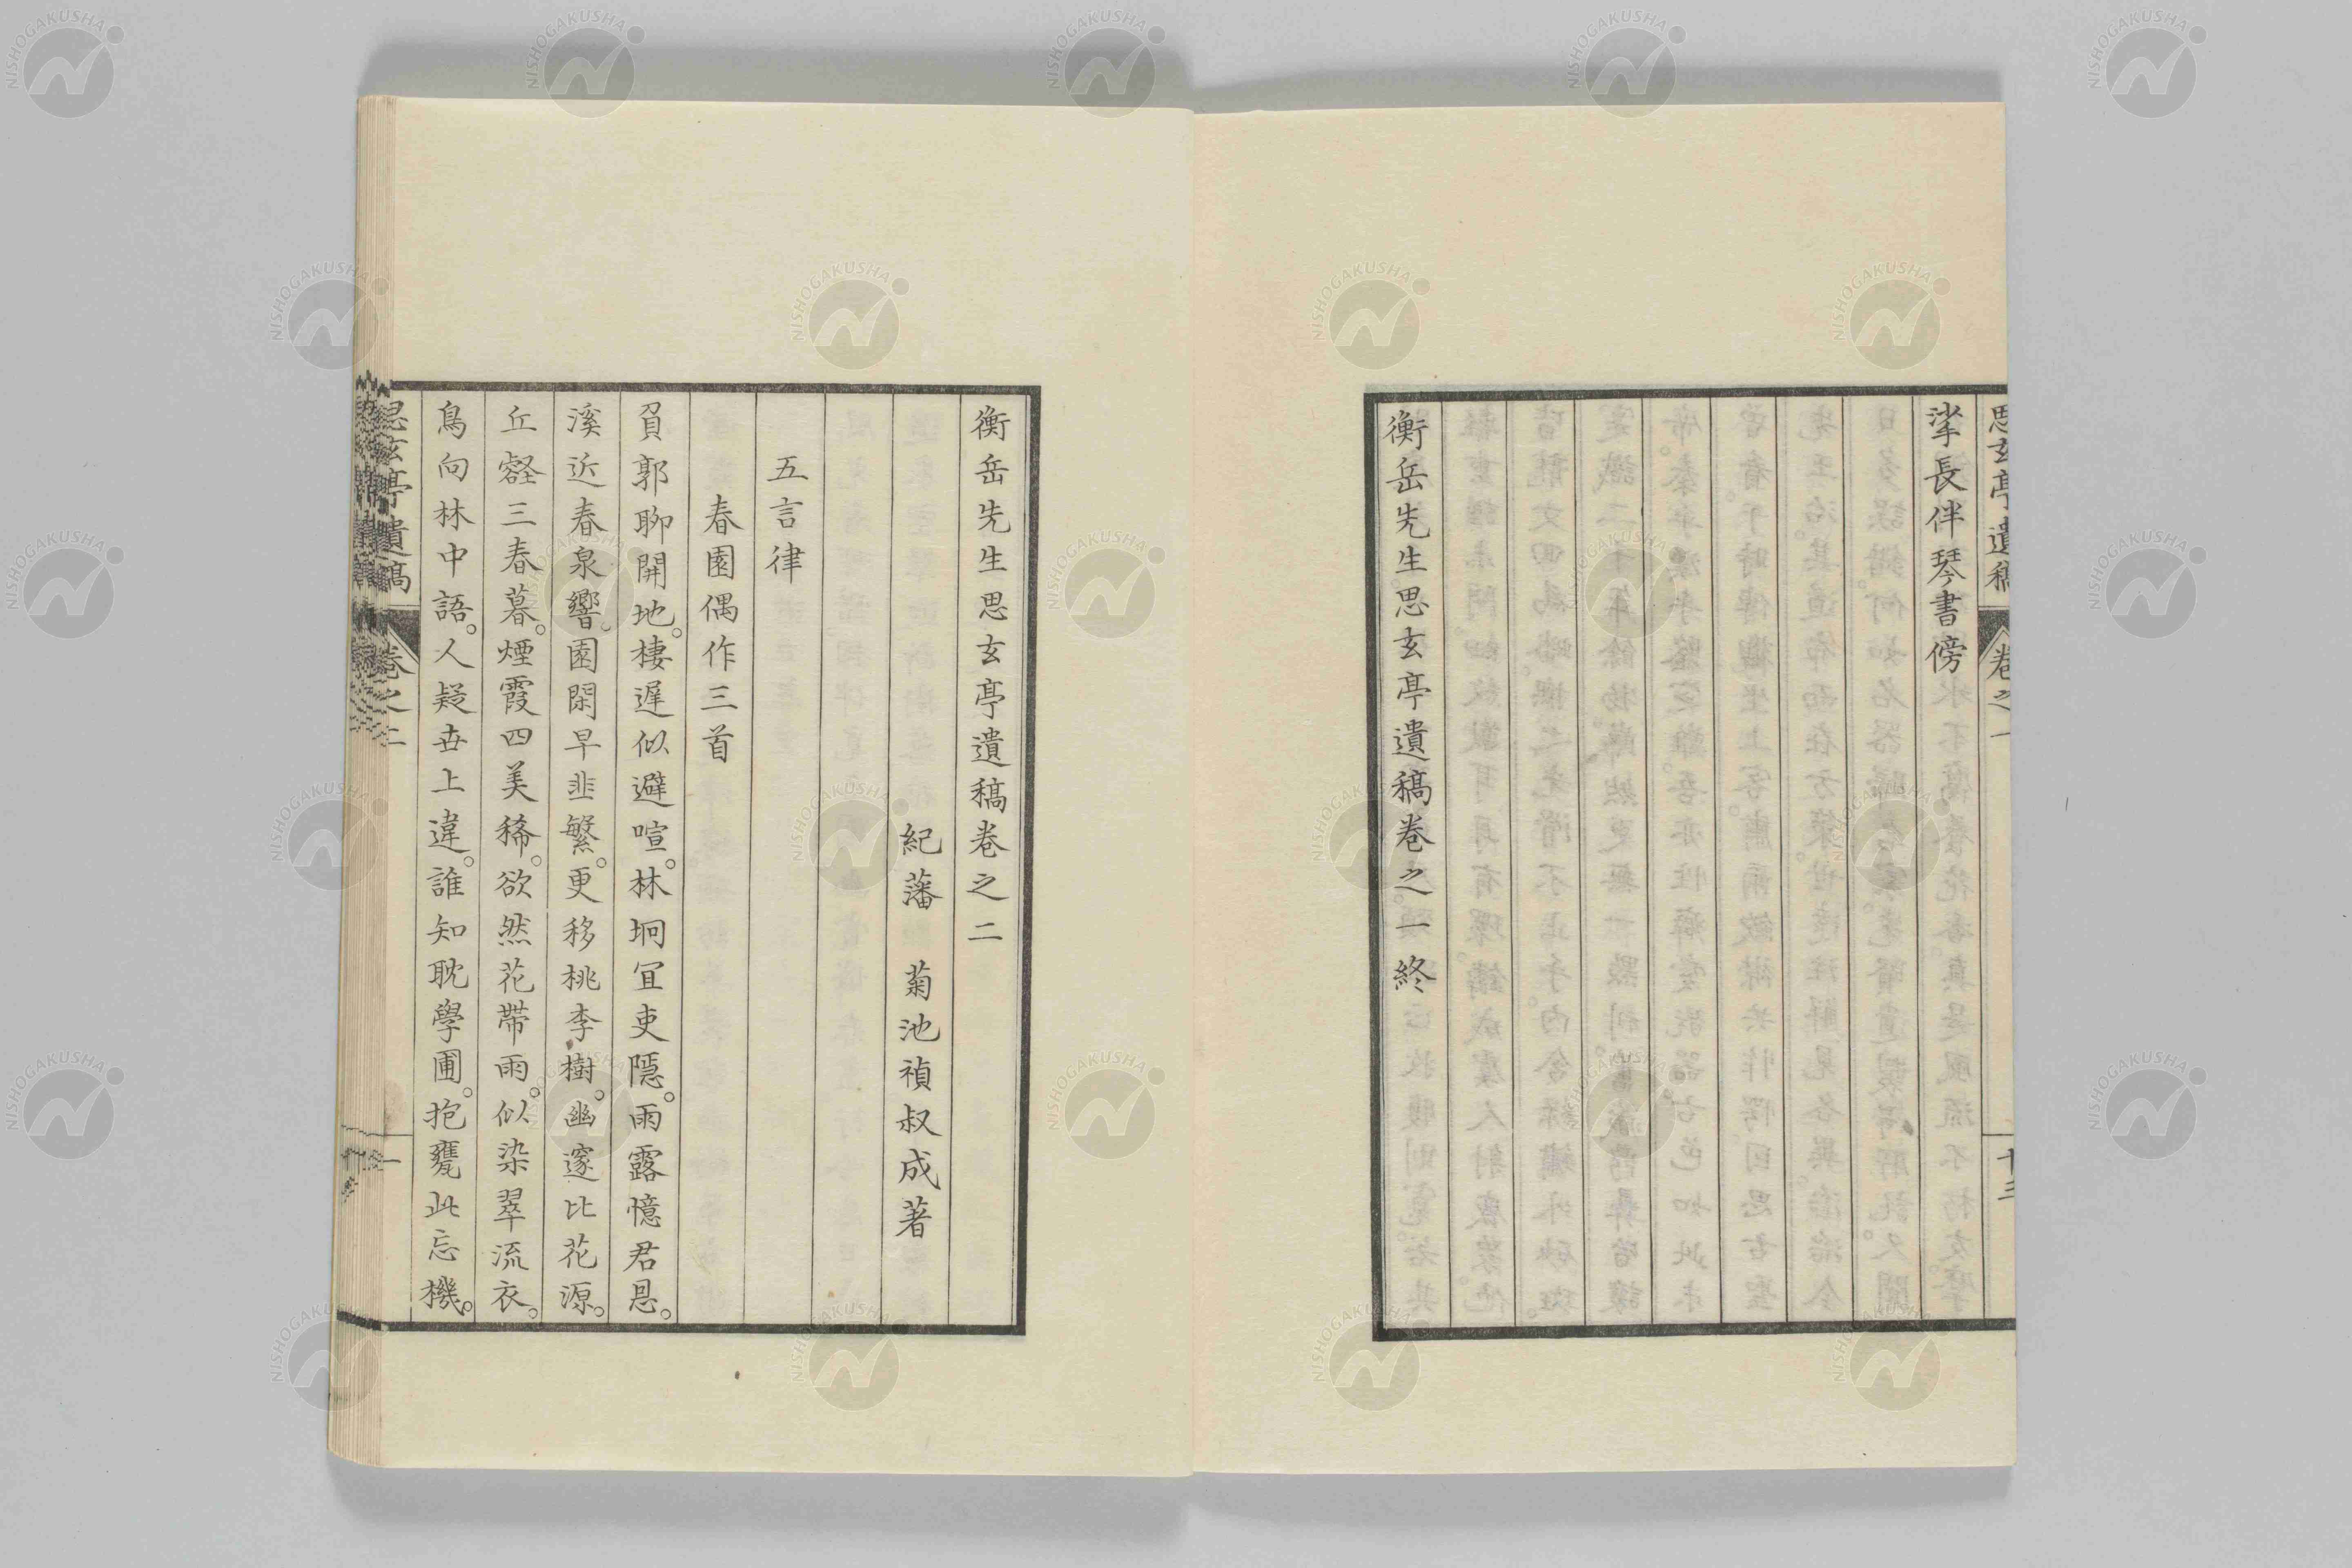 思玄亭遺稿 卷之一 十三
挲長伴琴書傍
衡岳先生思玄亭遺稿卷之一終
衡岳先生思玄亭遺稿卷之二
紀藩 菊池禎叔成著
五言律
春園偶作三首
負郭聊開地。棲遲似避喧。林坰宜吏隱。雨露憶君恩。
溪近春泉響。園閑早韭繁。更移桃李樹。幽邃比花源。
丘壑三春暮。煙霞四美稀。欲然花帶雨。似染翠流衣。
鳥向林中語。人疑世上違。誰知耽學圃。抱甕此忘機。
思玄亭遺稿 卷之二 一
NISHOGAKUSHA